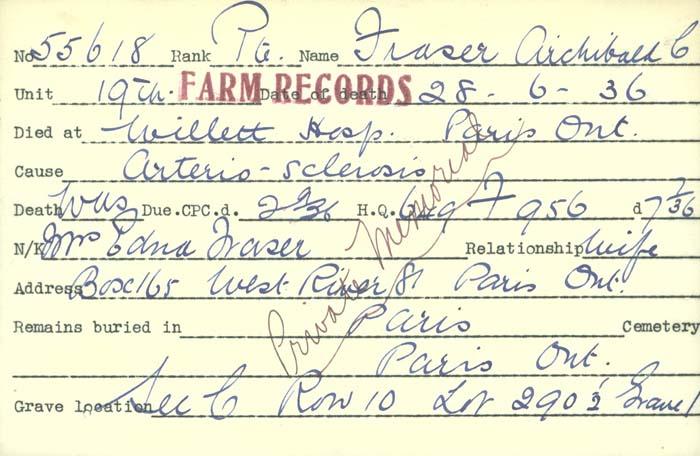 No 55618 Rank Pte. Name Fraser Archibald C
Unit 19th. FARM RECORDS Date of death 28 - 6 - 36
Died at Willett Hosp. Paris Ont.
Cause Arterio-sclerosis
Death Was Due.CPC.d. H.Q. 649 F 956 d
N/K Mrs Edna Fraser Relationship Wife
Address Box 165 West River St Paris Ont.
Private Memorial
Remains buried in Paris Cemetery
Paris Ont.
Grave location Sec C Row 10 Lot 290 ½ Grave 1